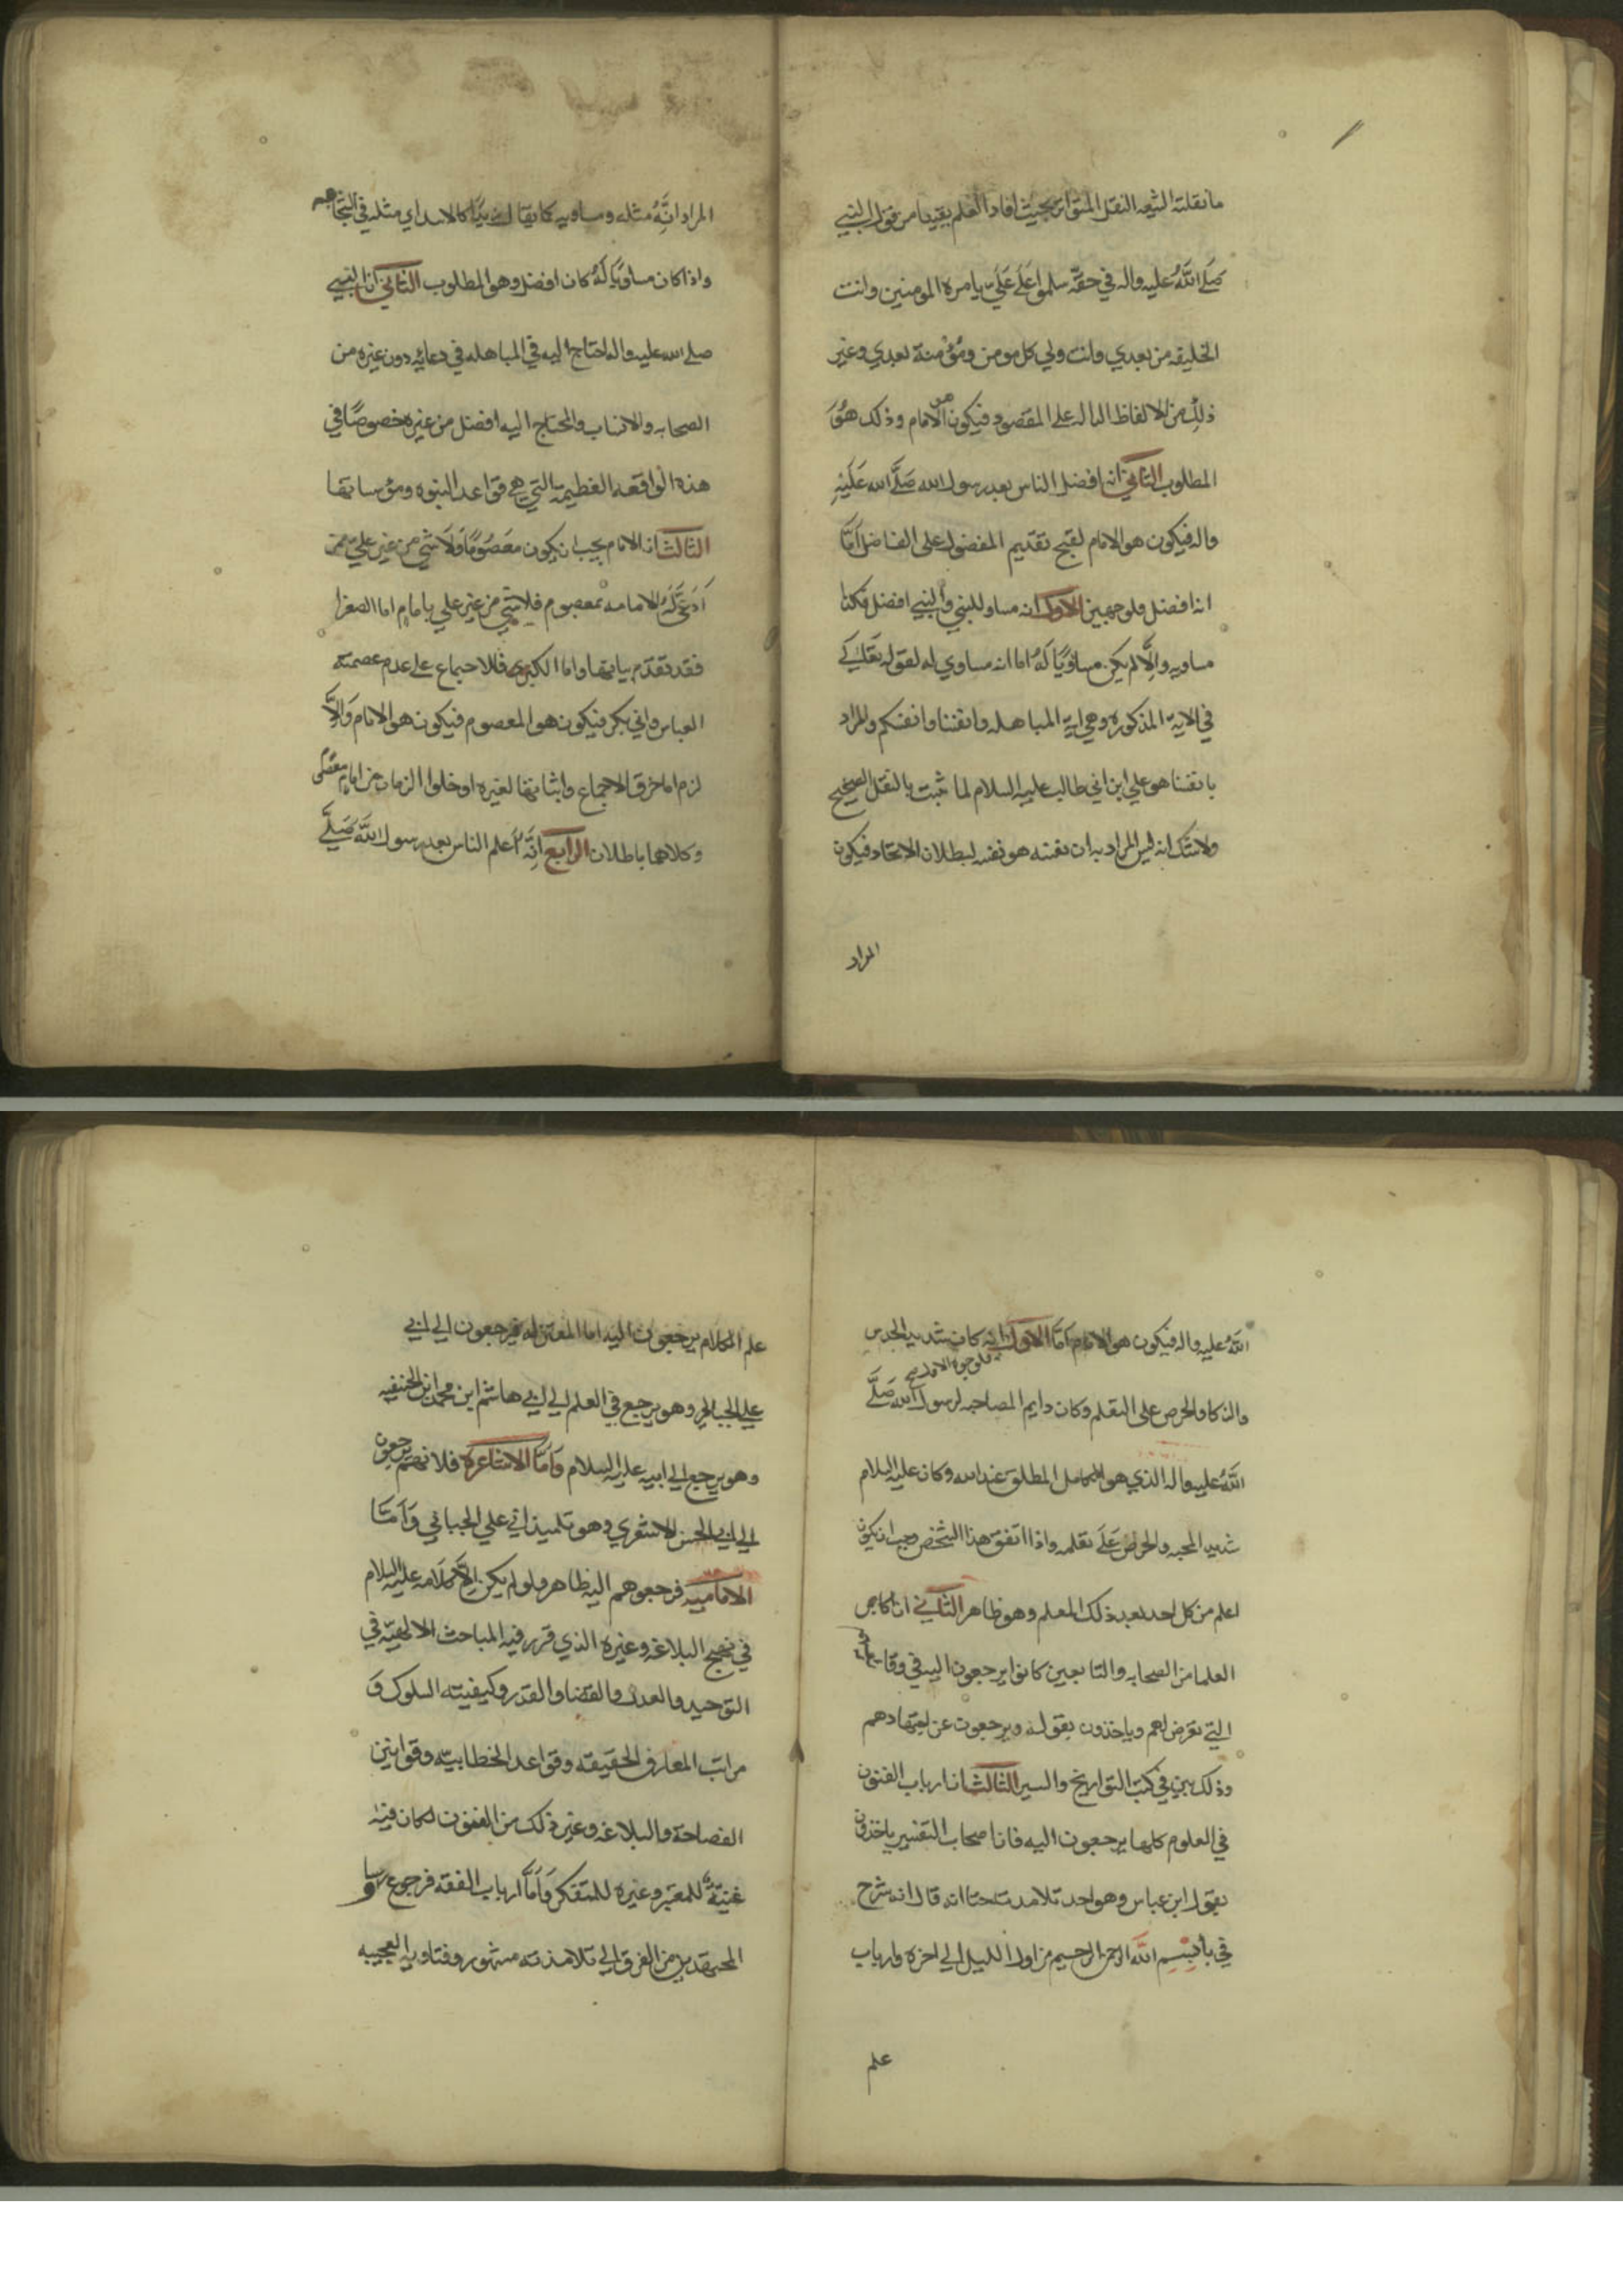 ما نقلته الشيعه النقل المتواتر بحيث افاد العلم يقينا من قول النبي
صَلَّ اللَّهُ عليه واله في حقّه سلموا عَلَى عَلَيّ بامرة المومنين وانت
الخليفه من بعدي وانت ولي كل مومن ومُؤمنة بعدي وغير
ذلِكَ من الالفاظ الداله على المقصود فيكون هو الامام وذلك هُوَ
المطلوب الثاني انه افضل الناس بعد رسول الله صَلَّ الله عَلَيهِ
واله فيكون هو الامام لقبح تقديم المفضول على الفاضل اَمَّا
انه افضل فلوجهين الاول انه مساو للنبي والنبي افضل فكذا
مساويه والَّا لم يكن مساويًا لَهُ اما انه مساوي له لقوله تعَالى
في الاية المذكوره وهي اية المباهله وانفسنا وانفسكم والمراد
بانفسنا هو علي ابن ابي طالب عليه السلام لما ثبت بالنقل الصحيح
ولا شك انه ليس المراد به ان نفسه هو نفسه لبطلان الاتحاد فيكون
المراد
المراد انَّهُ مثله ومساويه كما يقال زيدًا كالاسد اي مثله في الشجاعه
واذا كان مساويًا لَهُ كان افضل وهو المطلوب الثاني ان النبي
صلے الله عليه واله احتاج اليه في المباهله في دعائه دون غيره من
الصحابه والانساب والمحتاج اليه افضل من غيره خصوصًا في
هذه الواقعه العظيمة التي هي قواعد النبوه ومؤسساتها
الثالث ان الامام يجب ان يكون معَصُومًا وَلَا شي من غير علي ممن
اَدعَى لَهُ الامامه بمعصوم فلا شي من غير علي بامام اما الصغرا
فقد تقدّم بيانها واما الكبرى فللاجماع على عدم عصمة
العباس وابي بكر فيكون هو المعصوم فيكون هو الامام وَاِلَّا
لزم اما خرق الاجماع واثباتها لغيره او خلوا الزمان من امام معصوم
وكلاهما باطلان الرابع انَّهُ اَعلم الناس بعد رسول اللَّه صَلَّے
اللَّهُ عليه واله فيكون هو الامام اَمَّا الاول فلوجوه الاول انه كان شديد الحدس
والذكا والحرص على التعلم وكان دايم المصاحبه لرسول الله صَلَّے
اللَّهُ عليه واله الذي هو الكامل المطلق عند الله وكان عليه السلام
شديد المحبه والحرص عَلَى تعلمه واذا اتفق هذا الشخص وجب ان يكون
اعلم من كل احد بعد ذلك المعلم وهو ظاهر الثاني ان اكابر
العلما من الصحابه والتابعين كانوا يرجعون اليه في وقايع
التي تعرض لهم وياخذون بقوله ويرجعون عن اجتهادهم
وذلك بين في كتب التواريخ والسير الثالث ان ارباب الفنون
في العلوم كلها يرجعون اليه فان اصحاب التفسير ياخذون
بقول ابن عباس وهو احد تلامذته حتا انه قال انه شرح
في باء بسم اللَّه الرحمن الرحيم من اول الليل الي اخره وارباب
علم
علم الكلام يرجعون اليه اما المعتزله فيرجعون الي ابي
علي الجبائي وهو يرجع في العلم الي ابي هاشم ابن محمد ابن الحنفيه
وهو يرجع الي ابيه عليه السلام وَاَمَّا الاشاعره فلانهم يرجعون
الي ابي الحسن الاشعري وهو تلميذ ابي علي الجبائي وَاَمَّا
الاماميه فرجعوهم اليه ظاهر ولو لم يكن اِلَّا كلَامه عليه السلام
في نهج البلاغه وغيره الذي قرر فيه المباحث الالهيّه في
التوحيد والعدل والقضا والقدر وكيفيته السلوك وَ
مراتب المعارف الحقيقه وقواعد الخطابيته وقوانين
الفصاحة والبلاغه وغير ذلك من الفنون لكان فيه
غنيَةٌ للمعتبر وغيره للمتفكر وَاَمَّا ارباب الفقه فرجوع
المجتهدين من الفرق الي تلامذته مشهور وفتاويه العجيبه